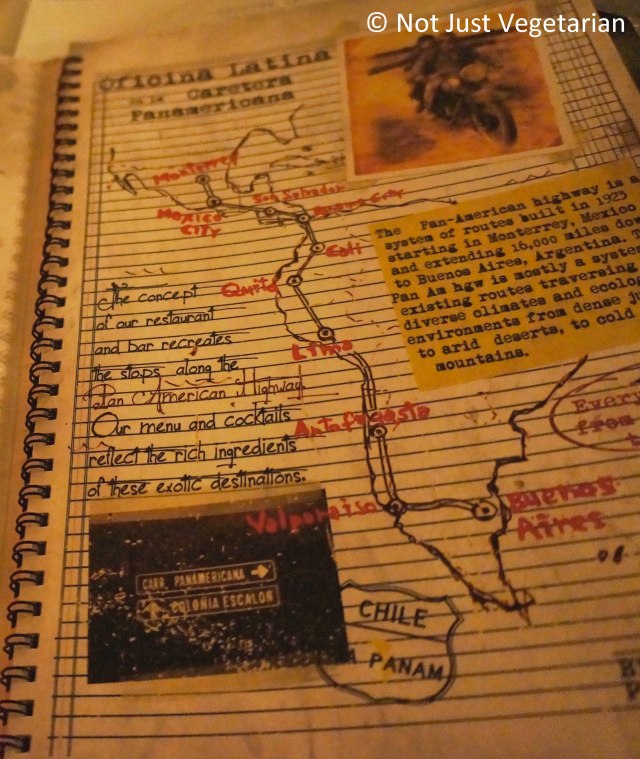 © Not Just Vegetarian
Oficina Latina
en la Caretera
Panamericana
Monterrey
Mexico
City
San Salvador
Panama City
Cali
Quito
Lima
Antofagasta
Valparaiso
Buenos
Aires
The Pan-American highway is a
system of routes built in 1923
starting in Monterrey, Mexico
and extending 16,000 miles do
to Buenos Aires, Argentina. T
Pan Am hgw is mostly a syste
existing routes traversing
diverse climates and ecolo
environments from dense j
to arid deserts, to cold
mountains.
The concept
of our restaurant
and bar recreates
the stops along the
Pan American Highway.
Our menu and cocktails
reflect the rich ingredients
of these exotic destinations.
Every
from
CARR. PANAMERICANA →
COLONIA ESCALON
CHILE
A PANAM